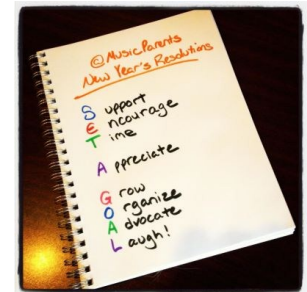 @MusicParents
New Year's Resolutions
Support
Encourage
Time
Appreciate
Grow
Organize
Advocate
Laugh!